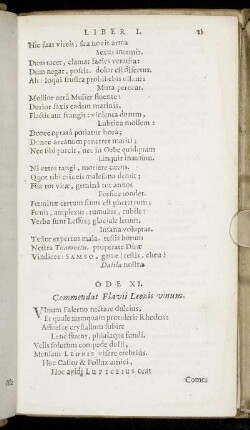 LIBER I.
Hic suas vireis, sua novit arma
Sexus inermis.
Dum tacet, clamat facies venusta:
Dum negat, poscit. dolor est disertus.
Ah! loqui frustra prohibebis
Muta
Mollior cerâ Mulier fluente:
Durior saxis eadem marinis.
Flectis aut frangis: violenta donum,
Lubrica mollem:
Donec optata potiatur horâ;
Donec arcanum penetret mariti;
Nec sibi parcit, nec in Orbe quidquam
Linquit
Ni vetes tangi, moriere
Quot tibi crineis malesana demit;
Hæc tot vitæ, geminâ tot annos
Forfice tondet.
Femina certum sinus est pharetrum;
Funis, amplexus; tumulus, cubile:
Verba sunt Lessus; glaciale letum,
Insana voluptas.
Testor expertus mala. testis horum
Nostra proprate Diræ
Vindices: SAMSO, gentis
Dalila nostra.
ODE XI.
Commendat Flavii Leonis vinum.
VInum Falerno nectare dulcius,
Et quale numquam protulerit Rhodos
Assuesce crystallum subire
Lene fluens, phialaque fundi.
Velis solutum compede dolii,
Mensam LEONIS visere crebriùs.
Hoc Castor & Pollux amici,
Hoc avidi erat
Comes